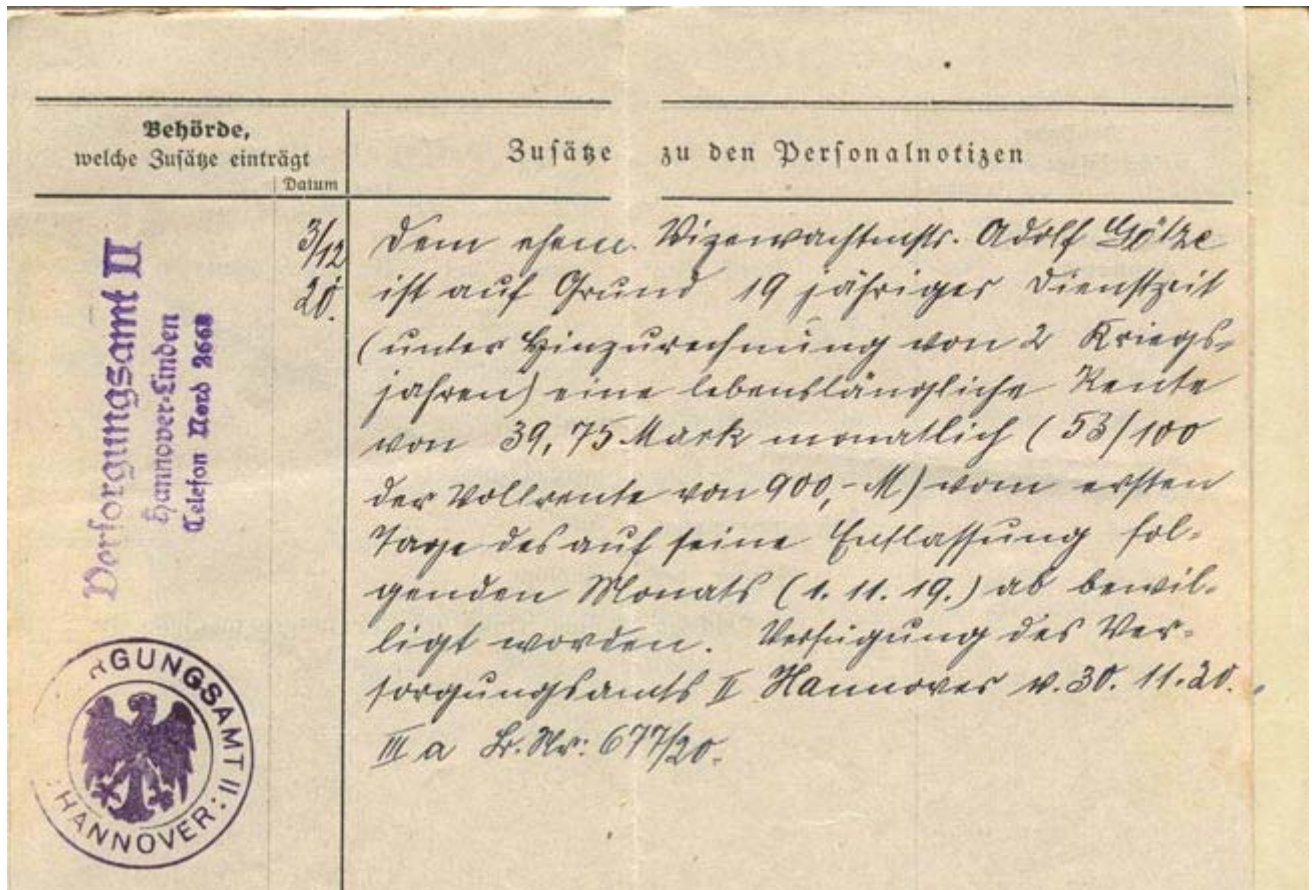 Behörde,
welche Zusätze einträgt
Datum
Zusätze zu den Personalnotizen
Versorgungsamt II
Hannover-Linden
Telefon Nord 2668
3/12
20.
Dem ehem. Vizewachtmstr. Adolf Götze
ist auf Grund 19 jähriger Dienstzeit
(unter Hinzurechnung von 2 Kriegs-
jahren) eine lebenslängliche Rente
von 39,75 Mark monatlich (53/100
der Vollrente von 900,- M) vom ersten
Tage des auf seine Entlassung fol-
genden Monats (1. 11. 19.) ab bewil-
ligt worden. Verfügung des Ver-
sorgungsamts II Hannover v. 30. 11. 20.
III a Nr: 677/20.
RGUNGSAMT II
HANNOVER